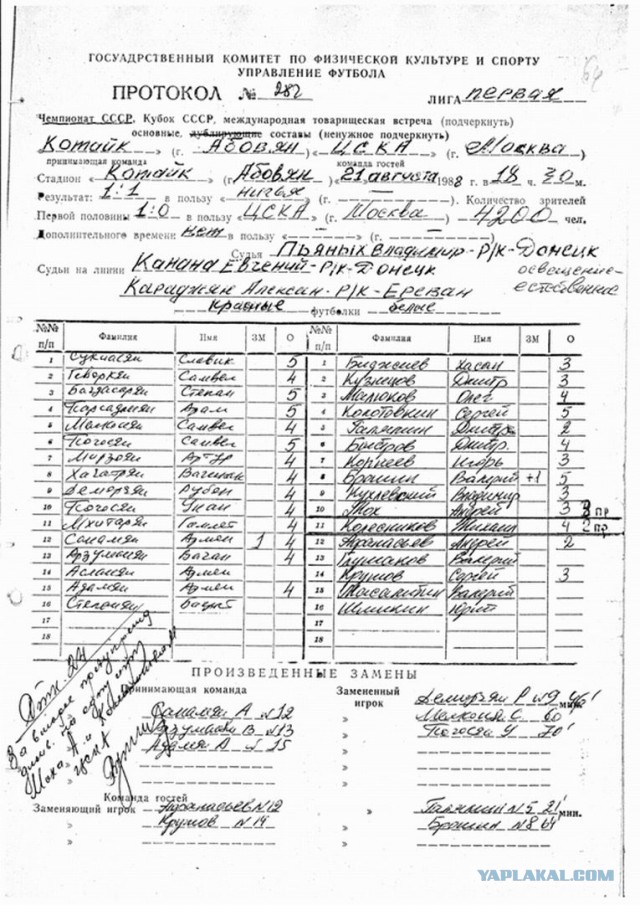 ГОСУАДРСТВЕННЫЙ КОМИТЕТ ПО ФИЗИЧЕСКОЙ КУЛЬТУРЕ И СПОРТУ
УПРАВЛЕНИЕ ФУТБОЛА
ПРОТОКОЛ № 282 ЛИГА первая
Чемпионат СССР, Кубок СССР, международная товарищеская встреча (подчеркнуть)
основные, дублирующие составы (ненужное подчеркнуть)
Котайк (г. Абовян) «ЦСКА» (г. Москва)
принимающая команда команда гостей
Стадион «Котайк» (Абовян) 21 августа 1988 г. в 18 ч. 30 м.
Результат: 1:1 в пользу «ничья» (г. —). Количество зрителей
Первой половины 1:0 в пользу «ЦСКА» (г. Москва) 4200 чел.
Дополнительного времени: нет в пользу «—» (г.)
Судья Пьяных Владимир - Р/к - Донецк
Судьи на линии Канана Евгений - Р/к - Донецк освещение -
Караджян Алексан - Р/к - Ереван естественное
красные футболки белые
№№ п/п Фамилия Имя ЗМ О №№ п/п Фамилия Имя ЗМ О
1 Сукиасян Славик 5 1 Биджиев Хасан 3
2 Геворкян Самвел 4 2 Кузнецов Дмитр 3
3 Багдасарян Степан 5 3 Малюков Олег 4
4 Парсаданян Адам 4 4 Колотовкин Сергей 5
5 Мелконян Самвел 4 5 Галямин Дмитр. 2
6 Погосян Самвел 5 6 Быстров Дмитр. 4
7 Мирзоян Артур 4 7 Корнеев Игорь 3
8 Хачатрян Вагинак 4 8 Брошин Валерий +1 5
9 Демирзян Рубен 4 9 Шухлевский Владимир 3
10 Погосян Унан 4 10 Мох Андрей 3 3 пр
11 Мхитарян Гамлет 4 11 Колесников Михаил 4 2 пр.
12 Санамян Армен 1 4 12 Афанасьев Андрей 2
13 Арзуманян Ваган 4 13 Глушаков Валерий
14 Асланян Армен 14 Крутов Сергей 3
15 Адамян Армен 4 15 Масалитин Валерий
16 Степанян Вацит 16 Шишкин Юрий
17 17
18 18
ПРОИЗВЕДЕННЫЕ ЗАМЕНЫ
Принимающая команда Замененный игрок
Санамян А №12 Демирзян Р №9 46' мин.
Арзуманян В №13 » Мелконян С. 60'
Адамян А №15 » Погосян У 70'
Команда гостей
Заменяющий игрок Афанасьев №12 » Галямин №5 21' мин.
» Крутов №14 » Брошин №8 64'
YAPLAKAL.COM